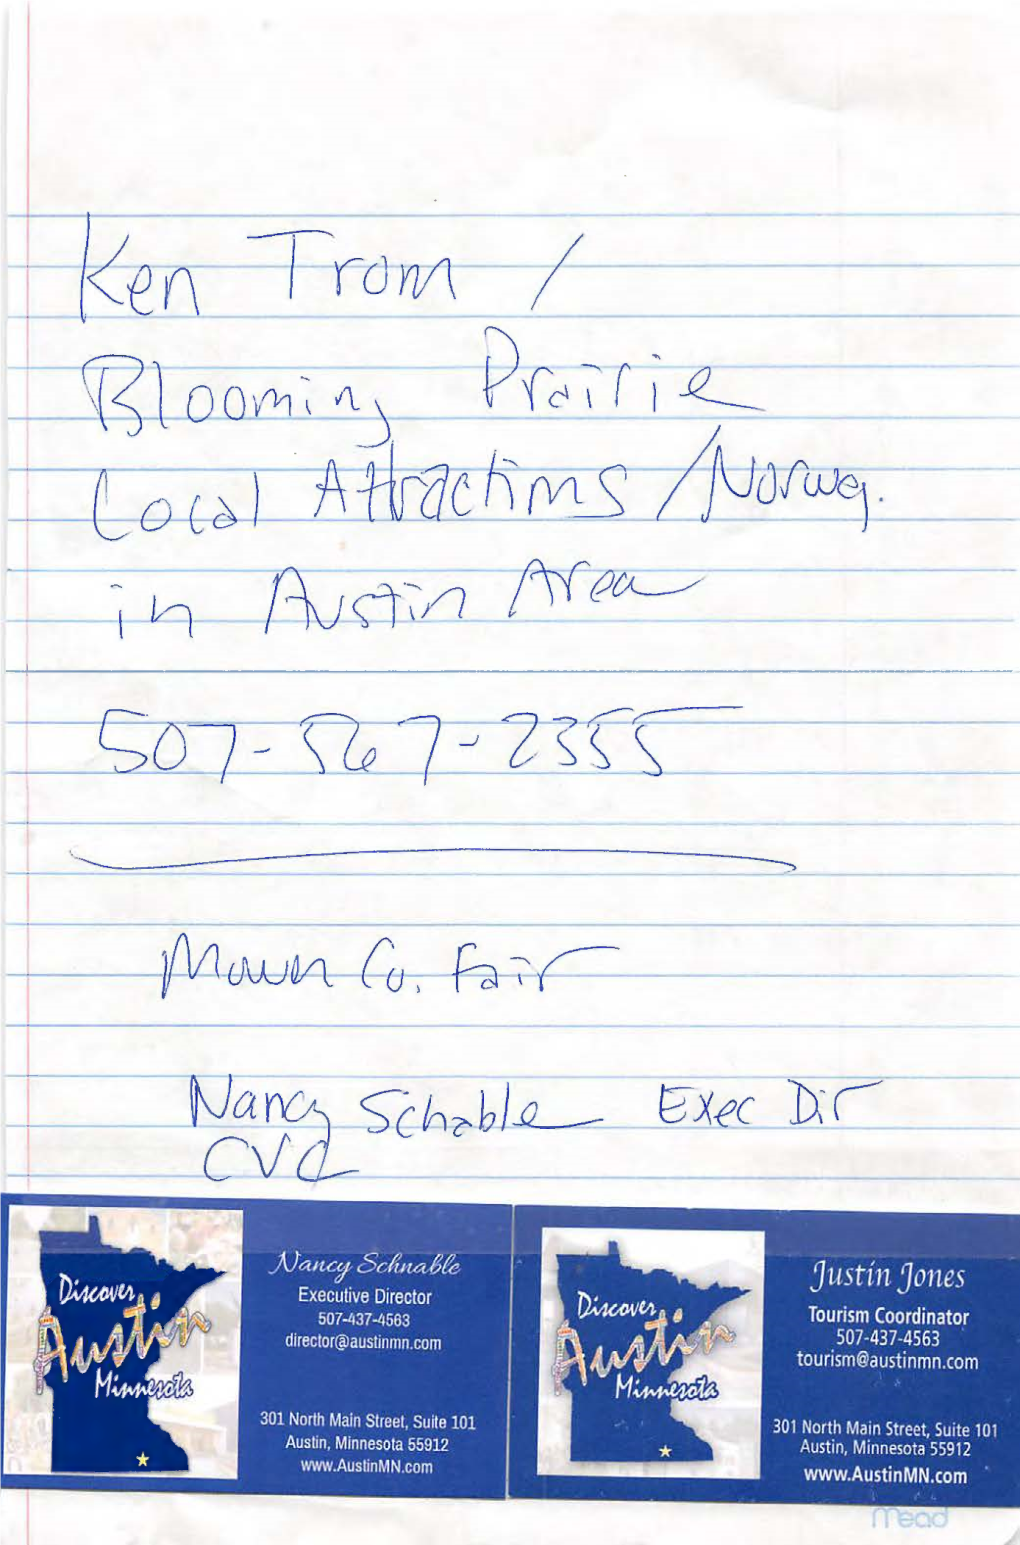 Ken Trom /
Blooming Prairie
Local Attractions / Norweg.
in Austin Area
507-567-2355
Mower Co. Fair
Nancy Schable Exec Dir
CVC
Discover
Austin
Minnesota
Nancy Schnable
Executive Director
507-437-4563
director@austinmn.com
301 North Main Street, Suite 101
Austin, Minnesota 55912
www.AustinMN.com
Discover
Austin
Minnesota
Justin Jones
Tourism Coordinator
507-437-4563
tourism@austinmn.com
301 North Main Street, Suite 101
Austin, Minnesota 55912
www.AustinMN.com
Mead